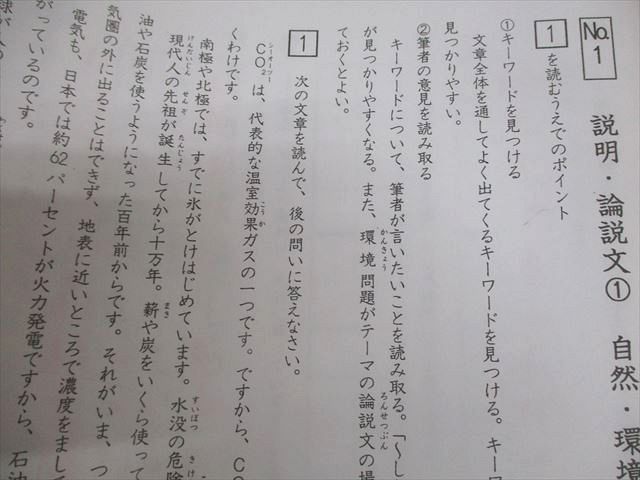 No.1 説明・論説文① 自然・環境
1 を読むうえでのポイント
①キーワードを見つける
文章全体を通してよく出てくるキーワードを見つける。キーワ
見つかりやすい。
②筆者の意見を読み取る
キーワードについて、筆者が言いたいことを読み取る。「〜し
が見つかりやすくなる。また、環境問題がテーマの論説文の場
ておくとよい。
1 次の文章を読んで、後の問いに答えなさい。
CO₂は、代表的な温室効果ガスの一つです。ですから、CO
くわけです。
南極や北極では、すでに氷がとけはじめています。水没の危険
現代人の先祖が誕生してから十万年。薪や炭をいくら使って
油や石炭を使うようになった百年前からです。それがいま、つ
気圏の外に出ることはできず、地表に近いところで濃度をまして
電気も、日本では約62パーセントが火力発電ですから、石油
がっているのです。